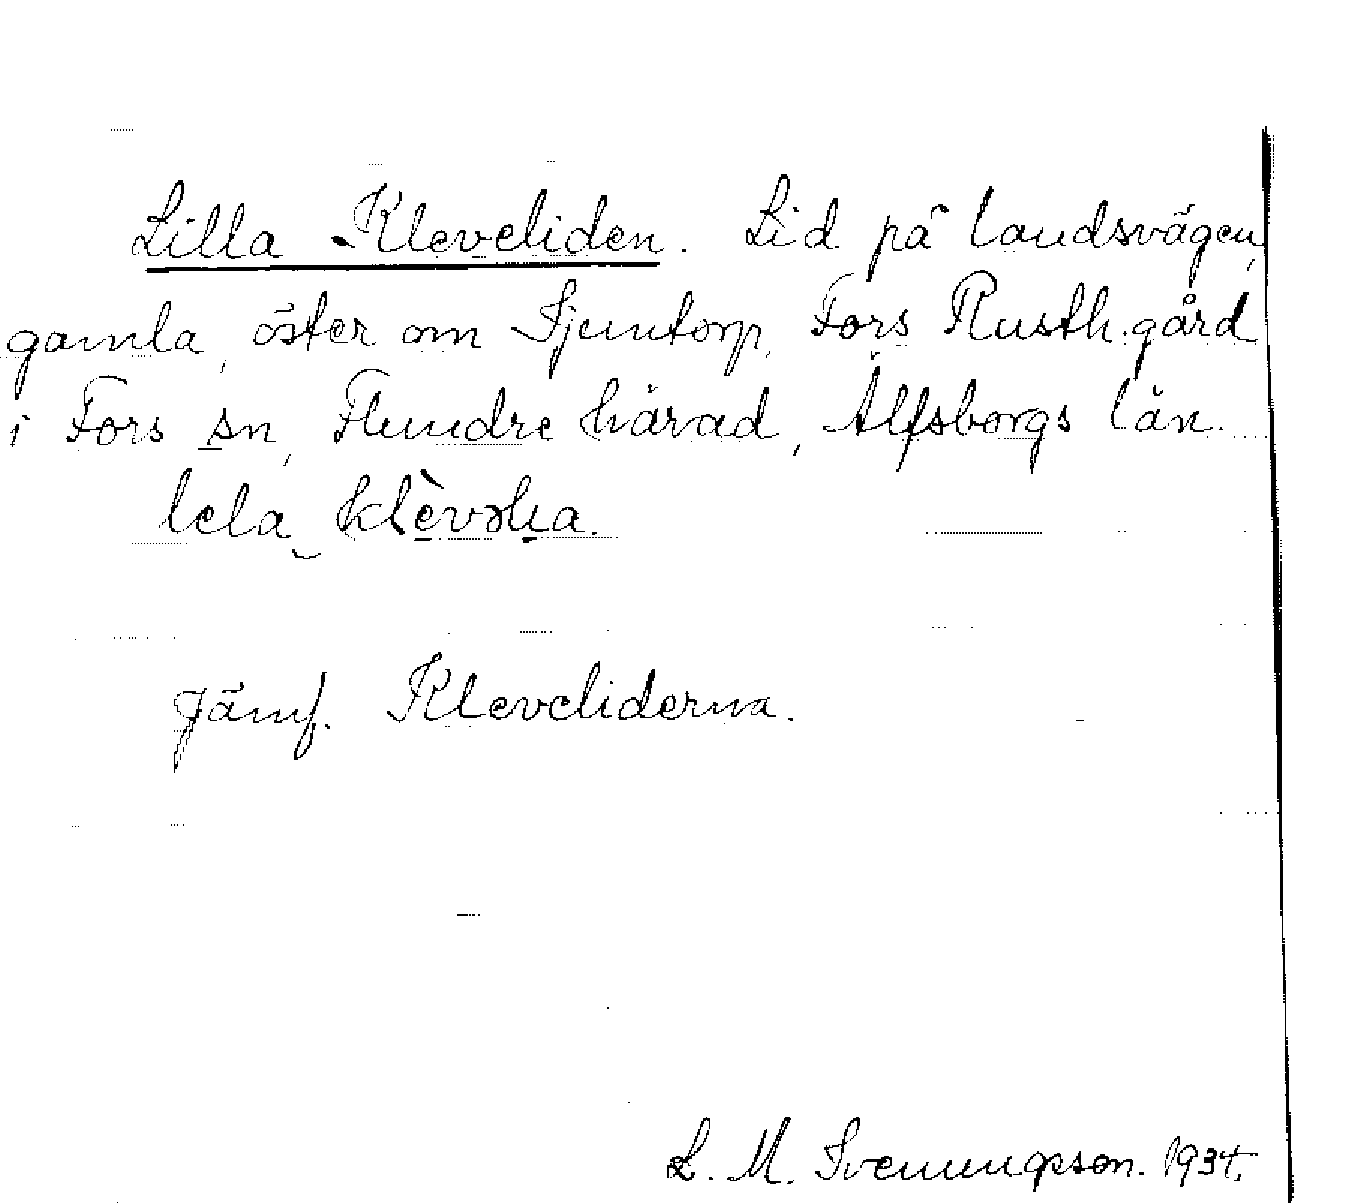 Lilla Kleveliden. Lid på landsvägen,
gamla, öster om Sjuntorp, Fors Rusth.gård
i Fors sn, Flundre härad, Älfsborgs län.
lela klèvəlia.
Jämf. Kleveliderna.
L. M. Svenungsson. 1934.